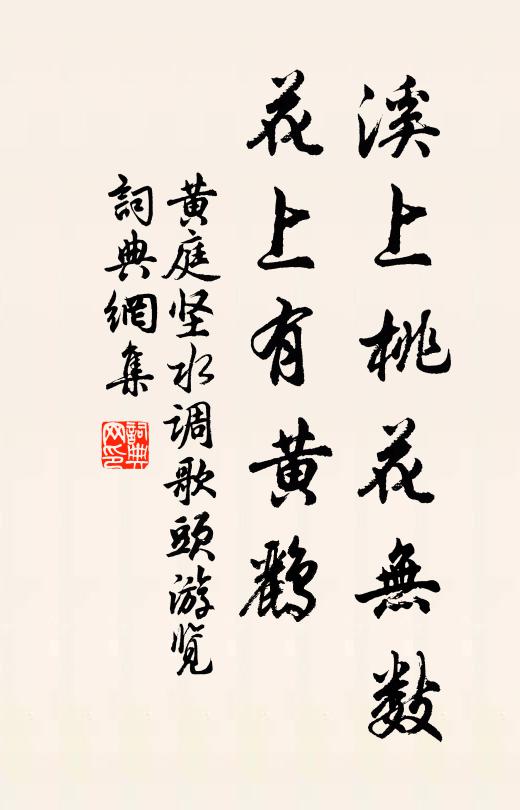 溪上桃花無數
花上有黃鸝
黃庭坚水调歌頭游览
詞典網集
詞典
网印